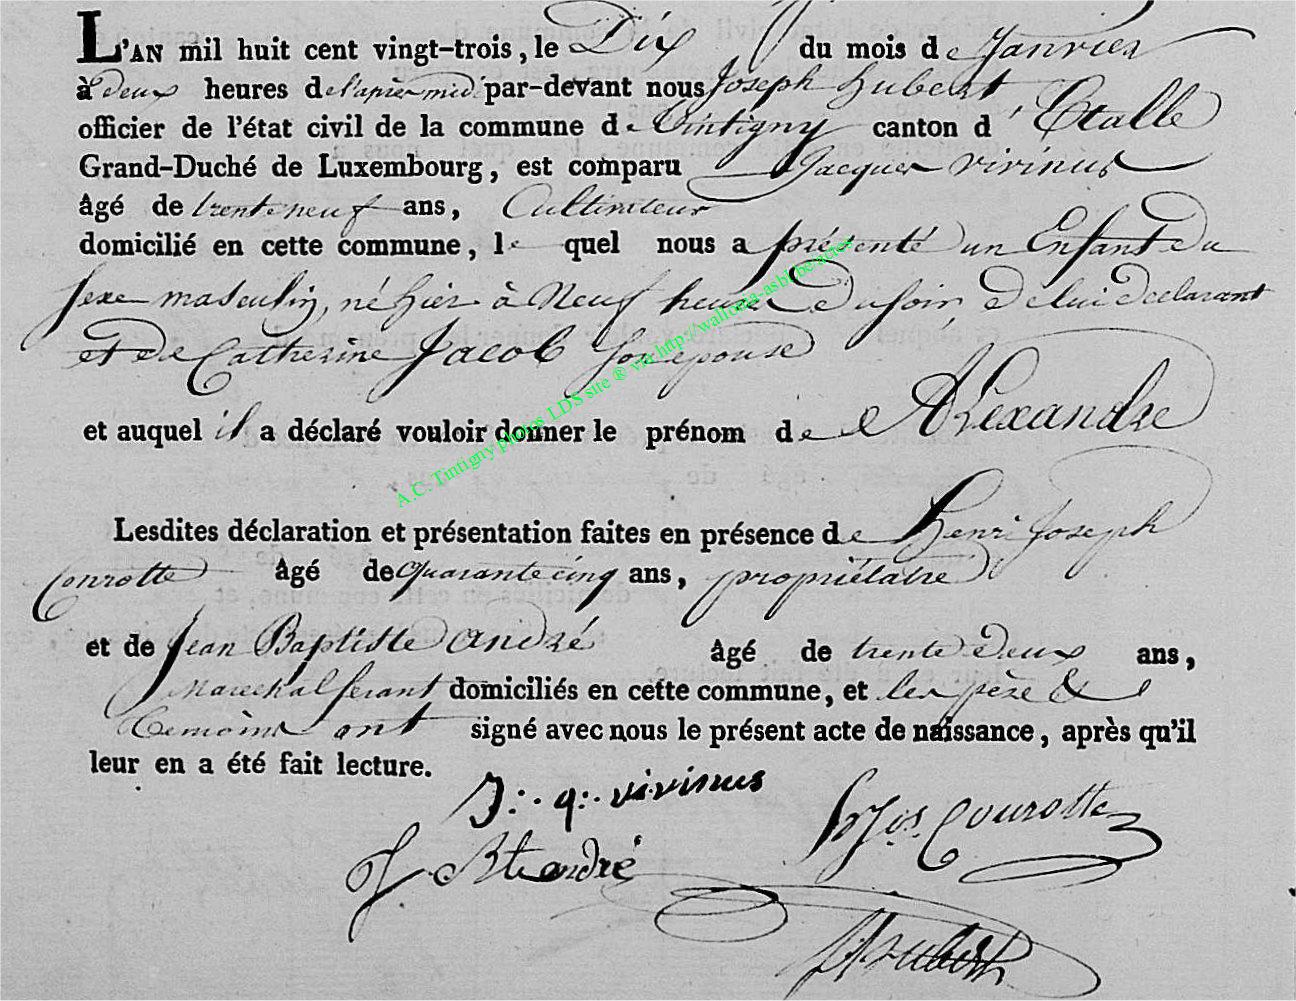 L'AN mil huit cent vingt-trois, le Dix du mois de Janvier
à deux heures de l'apièr midi par-devant nous Joseph hubert
officier de l'état civil de la commune de Tintigny canton d'Etalle
Grand-Duché de Luxembourg, est comparu Jacques vivinus
âgé de trente neuf ans, Cultivateur
domicilié en cette commune, le quel nous a présenté un Enfant du
sexe masculin, né hier à Neuf heure Du soir, De lui Declarant
et de Catherine Jacob son epouse
et auquel il a déclaré vouloir donner le prénom de Alexandre
Lesdites déclaration et présentation faites en présence de henri Joseph
Conrotte âgé de quarante cinq ans, propriétaire
et de Jean Baptiste andré âgé de trente Deux ans,
Marechal ferant domiciliés en cette commune, et les père &
temoins ont signé avec nous le présent acte de naissance, après qu'il
leur en a été fait lecture.
J:. q:. vivinus
h Jos. Conrotte
J Bte andré
J hubert
A.C. Tintigny photos LDS site ® via http://wallonia-asbl.be/actes